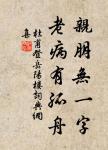 親朋無一字
老病有孤舟
杜甫登岳陽樓詞典網